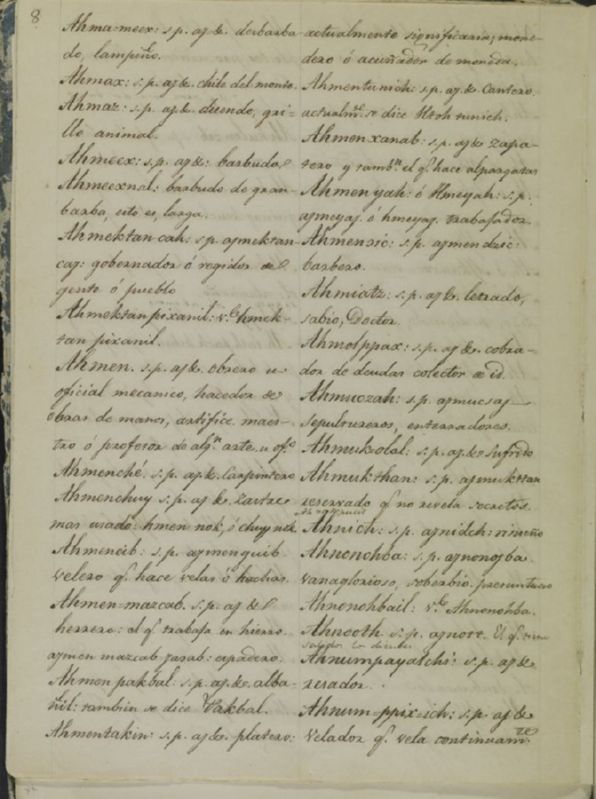 8
Ahma-meex: s.p. aj &. desbarba-
do, lampiño.
Ahmax: s.p. aj &. chile del monte.
Ahmaz: s.p. aj &. duende, gri-
llo animal.
Ahmeex: s.p. aj &: barbudo
Ahmeexnal: barbudo de gran
barba, esto es, larga.
Ahmektan cah: s.p. ajmektan
caj: gobernador ó regidor de
gente ó pueblo
Ahmektan pixanil: v.e hmek-
tan pixanil.
Ahmen. s.p. aj &. obrero u
oficial mecanico, hacedor de
obras de manos, artifice. maes-
tro ó profesor de algn arte u ofo
Ahmenché. s.p. aj &. Carpintero
Ahmenchuy s.p. aj &. Zastre
mas usado: hmen nok, ó chuy nok
Ahmencib: s.p. ajmenquib
velero q.e hace velas ó hachas.
Ahmen-mazcab. s.p. aj &
herrero: el q.e trabaja en hierro
ajmen mazcab
Ahmen pakbal: s.p. aj &. alba-
ñil: tambien se dice Pakbal.
Ahmentakin: s.p. aj &. platero:
actualmente significaria; mone-
dero ó acuñador de moneda.
Ahmentunich: s.p. aj &. Cantero.
actualm.te se dice tunich.
Ahmenxanab: s.p. aj &. zapa-
tero y tambn el q.e hace alpargatas
Ahmenyah: ó Hmeyah: s.p.
ajmeyaj. ó hmeyaj. trabajador.
Ahmenzic: s.p. ajmen dzic:
barbero.
Ahmiatz: s.p. aj &. letrado,
sabio, Doctor.
Ahmolppax: s.p. aj &. cobra-
dor de deudas colector &. id.
Ahmuczah: s.p. ajmucsaj
sepultureros, enterradores.
Ahmukolal: s.p. aj &. sufrido
Ahmukthan: s.p. ajmuktan
reservado q.e no revela secretos.
Ahnich: s.p. ajnich:
Ahnonohba: s.p. ajnonojba
vanaglorioso, soberbio. presuntuoso
Ahnonohbail: v.e Ahnonohba.
Ahnooth. s.p. ajnott. El q.e
Ahnumpayatchi: s.p. aj &
rezador.
Ahnum-ppix-ich: s.p. aj &
Velador q.e vela continuam.te